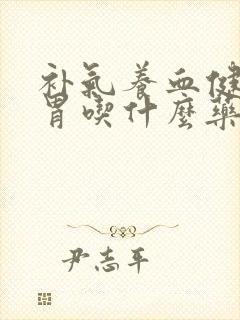 补氣养血健
胃喫什麼藥
尹志平